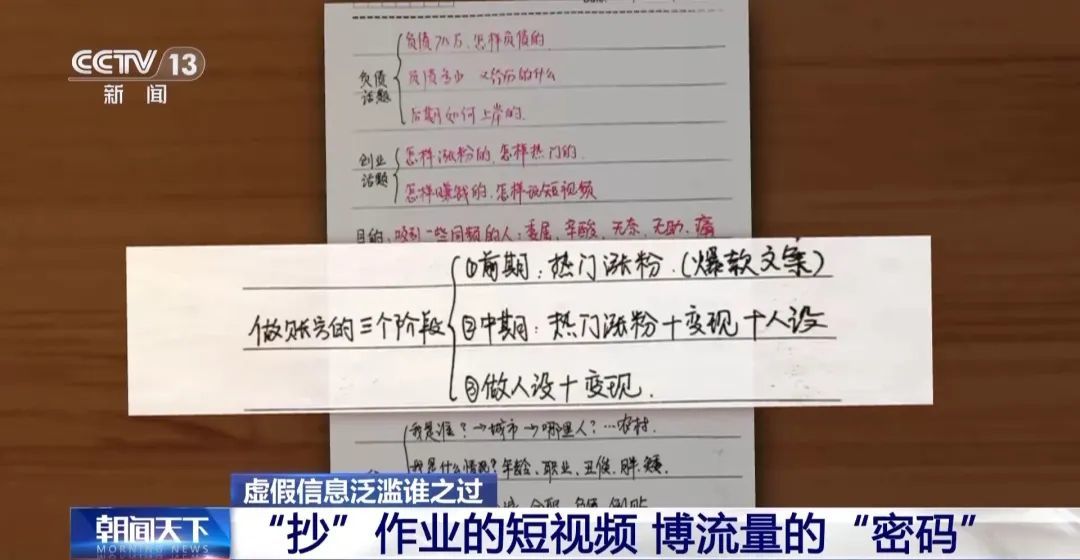 CCTV 13
新闻
负债话题
负债70万、怎样负债的
负债
后期如何上岸的.
创业话题
怎样涨粉的、怎样热门的.
怎样赚钱的、怎样玩短视频
目的、吸引一些同频的人：委屈、辛酸、无奈、无助、痛
做账号的三个阶段
①前期：热门涨粉.(爆款文案)
②中期：热门涨粉+变现+人设
③做人设+变现.
我是谁？→城市→哪里人？…农村.
我是什么情况？年龄、职业、丑俊、胖矮.
虚假信息泛滥谁之过
朝闻天下
MORNING NEWS
“抄”作业的短视频 博流量的“密码”